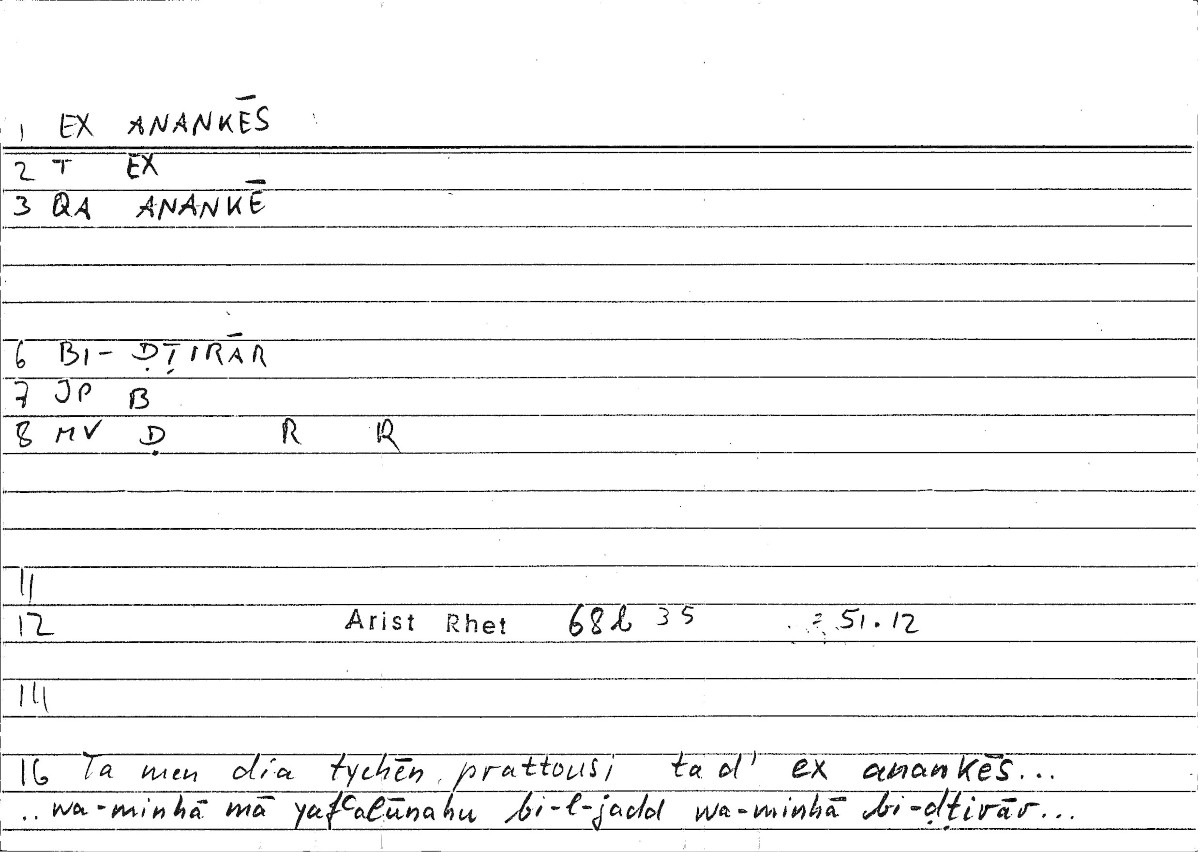 1 EX ANANKĒS
2 T EX
3 QA ANANKĒ
6 BI- ḌṬIRĀR
7 JP B
8 MV Ḍ R R
11
12 Arist Rhet 68b 35 = 51.12
14
16 Ta men dia tychēn prattousi ta d' ex anankēs...
..wa-minhā mā yafᶜalūnahu bi-l-jadd wa-minhā bi-ḍṭirār...